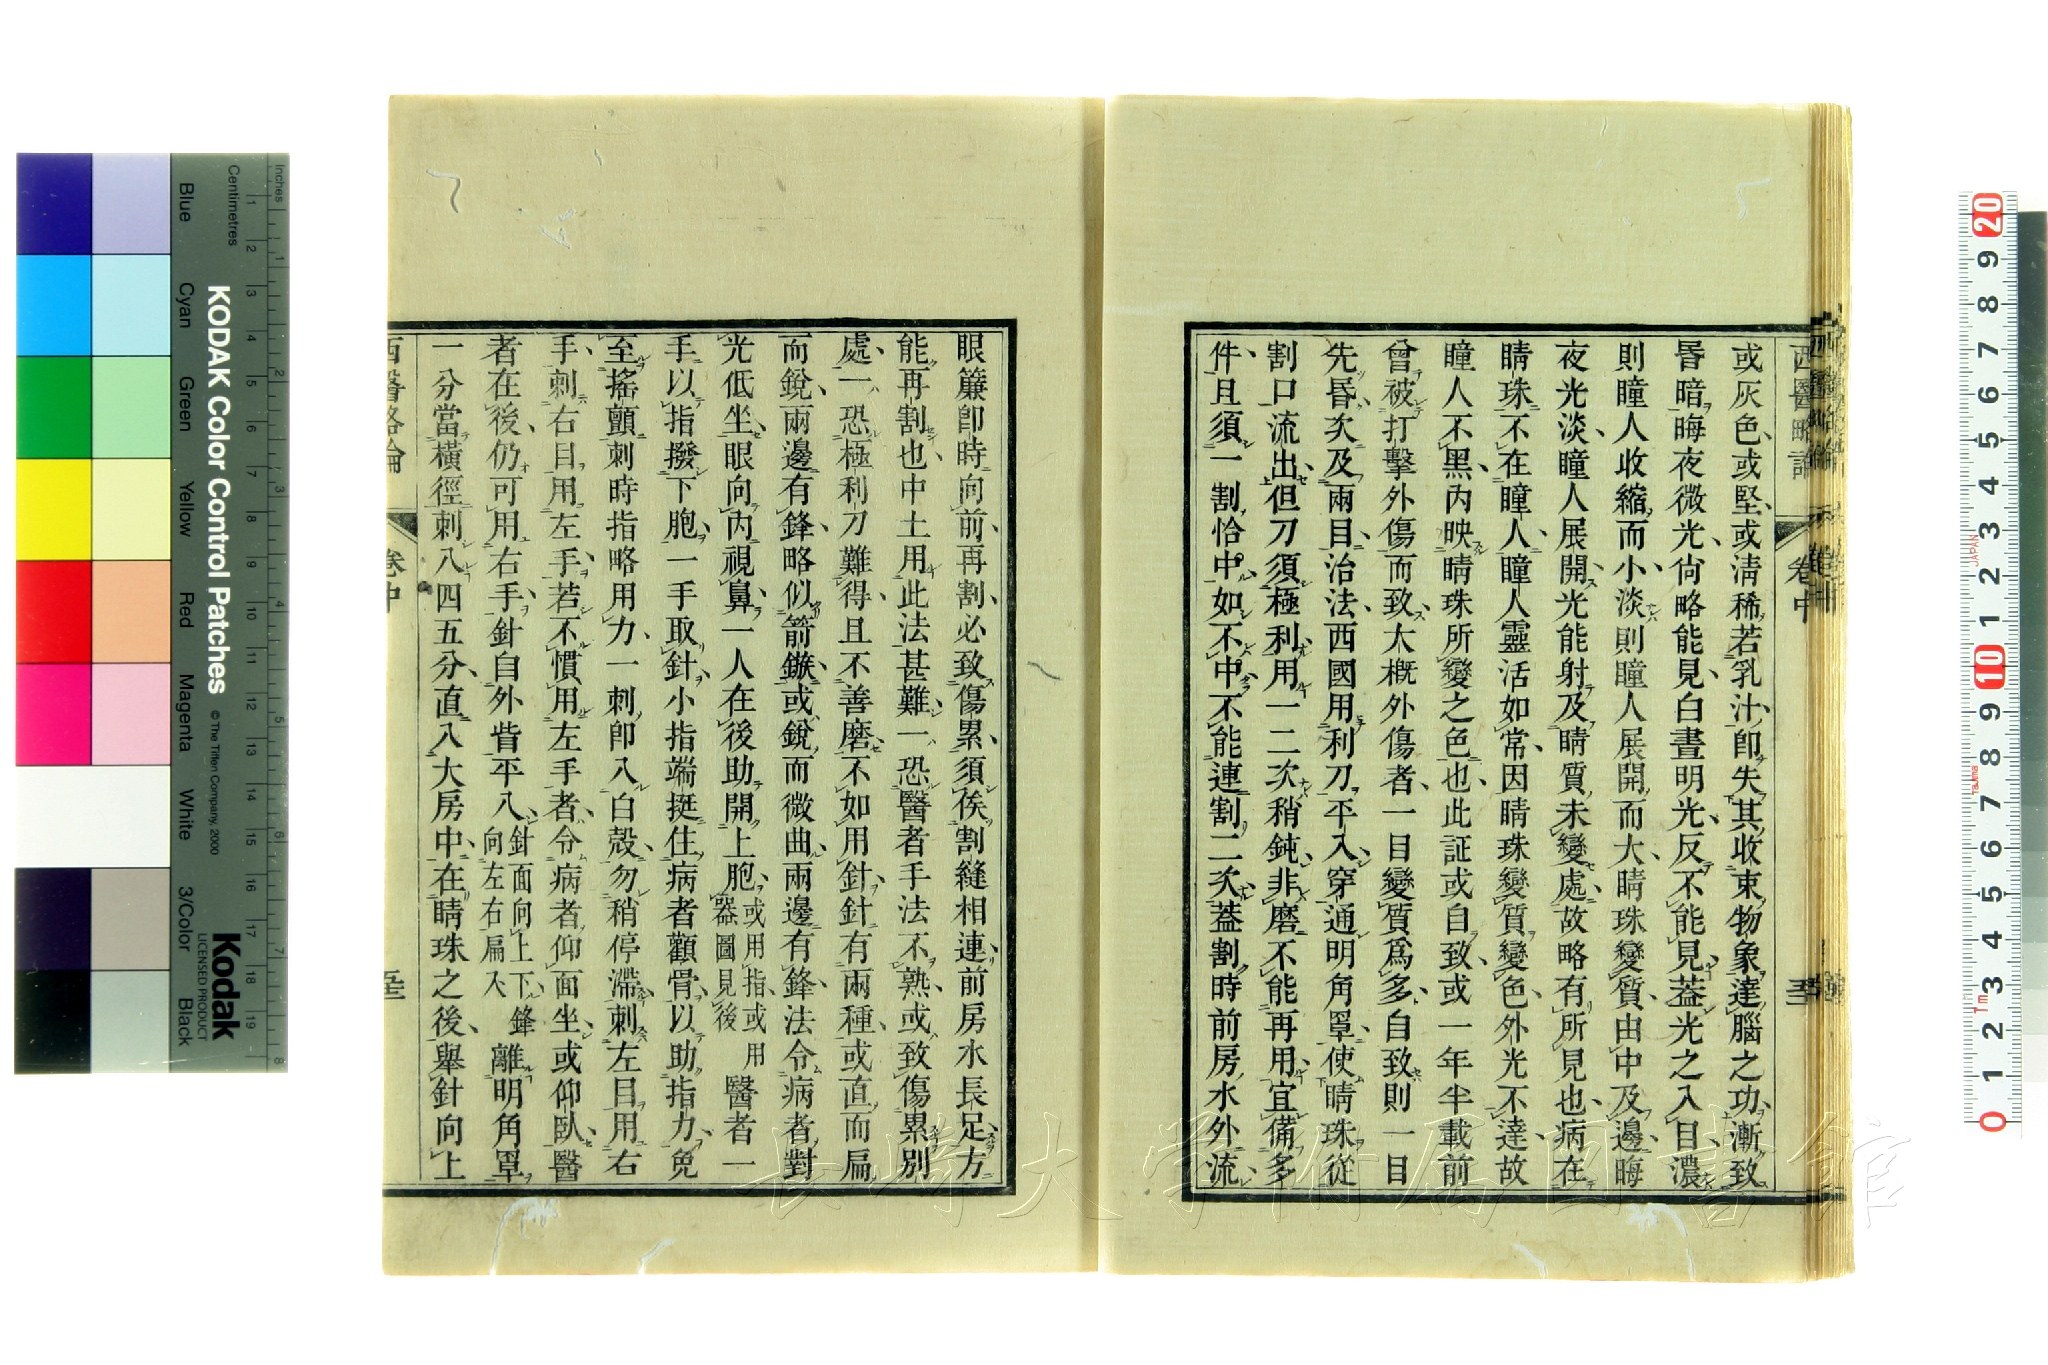 或灰色或堅或清稀若乳汁卽失其收束物象達腦之功漸致
昏暗晦夜微光尙略能見白晝明光反不能見葢光之入目濃
則瞳人收縮而小淡則瞳人展開而大睛珠變質由中及邊晦
夜光淡瞳人展開光能射及睛質未變處故略有所見也病在
睛珠不在瞳人瞳人靈活如常因睛珠變質變色外光不達故
瞳人不黑內映睛珠所變之色也此証或自致或一年半載前
曾被打擊外傷而致大槪外傷者一目變質爲多自致則一目
先昏次及兩目治法西國用利刀平入穿通明角罩使睛珠從
割口流出但刀須極利用一二次稍鈍非磨不能再用宜備多
件且須一割恰中如不中不能連割二次葢割時前房水外流
西醫略論
卷中
眼簾卽時向前再割必致傷累須俟割縫相連前房水長足方
能再割也中土用此法甚難一恐醫者手法不熟或致傷累別
處一恐極利刀難得且不善磨不如用針針有兩種或直而扁
而銳兩邊有鋒略似箭鏃或銳而微曲兩邊有鋒法令病者對
光低坐眼向內視鼻一人在後助開上胞或用指或用器圖見後醫者一
手以指撥下胞一手取針小指端挺住病者顴骨以助指力免
至搖顫刺時指略用力一刺卽入白殼勿稍停滯刺左目用右
手刺右目用左手若不慣用左手者令病者仰面坐或仰臥醫
者在後仍可用右手針自外眥平入針面向上下鋒向左右扁入離明角罩
一分當橫徑刺入四五分直入大房中在睛珠之後舉針向上
西醫略論
卷中
KODAK Color Control Patches
© The Tiffen Company, 2000
Kodak
LICENSED PRODUCT
Inches
Centimetres
Blue
Cyan
Green
Yellow
Red
Magenta
White
3/Color
Black
JAPAN
長崎大学附属図書館